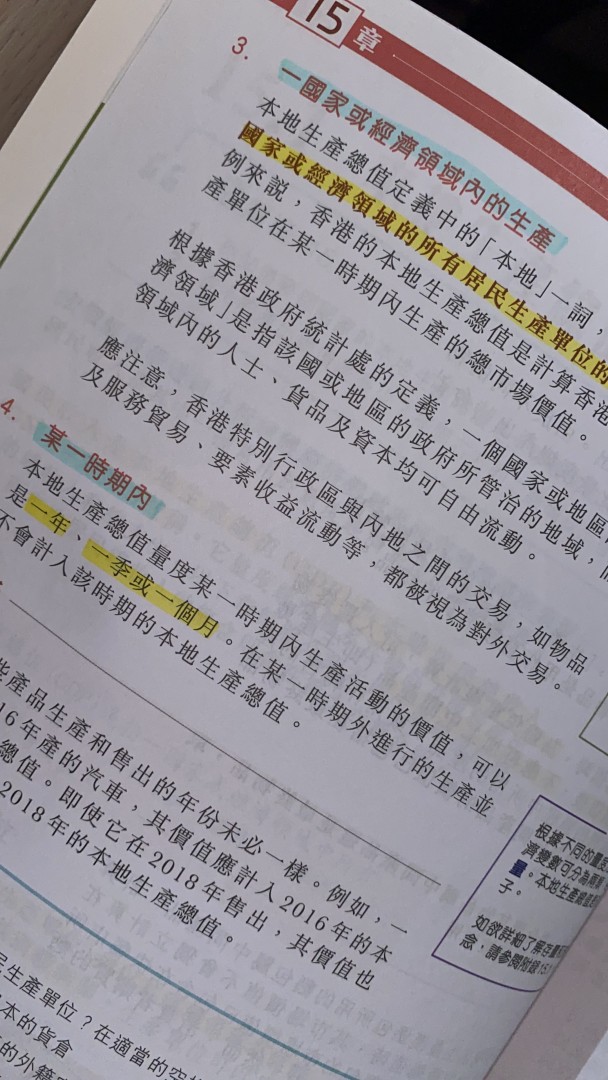 15 章
3. 一國家或經濟領域內的生產
本地生產總值定義中的「本地」一詞，
國家或經濟領域的所有居民生產單位的
例來說，香港的本地生產總值是計算香港
產單位在某一時期內生產的總市場價值。
根據香港政府統計處的定義，一個國家或地區
濟領域」是指該國或地區的政府所管治的地域，
領域內的人士、貨品及資本均可自由流動。
應注意，香港特別行政區與內地之間的交易，如物品
及服務貿易、要素收益流動等，都被視為對外交易。
4. 某一時期內
本地生產總值量度某一時期內生產活動的價值，可以
是一年、一季或一個月。在某一時期外進行的生產並
不會計入該時期的本地生產總值。
些產品生產和售出的年份未必一樣。例如，一
16年產的汽車，其價值應計入2016年的本
總值。即使它在2018年售出，其價值也
2018年的本地生產總值。
根據不同的量
濟變數可分為
量。本地生產總
子。
如欲詳細了解存量
念，請參閱附錄15
民生產單位？在適當的空
本的貨倉
的外籍